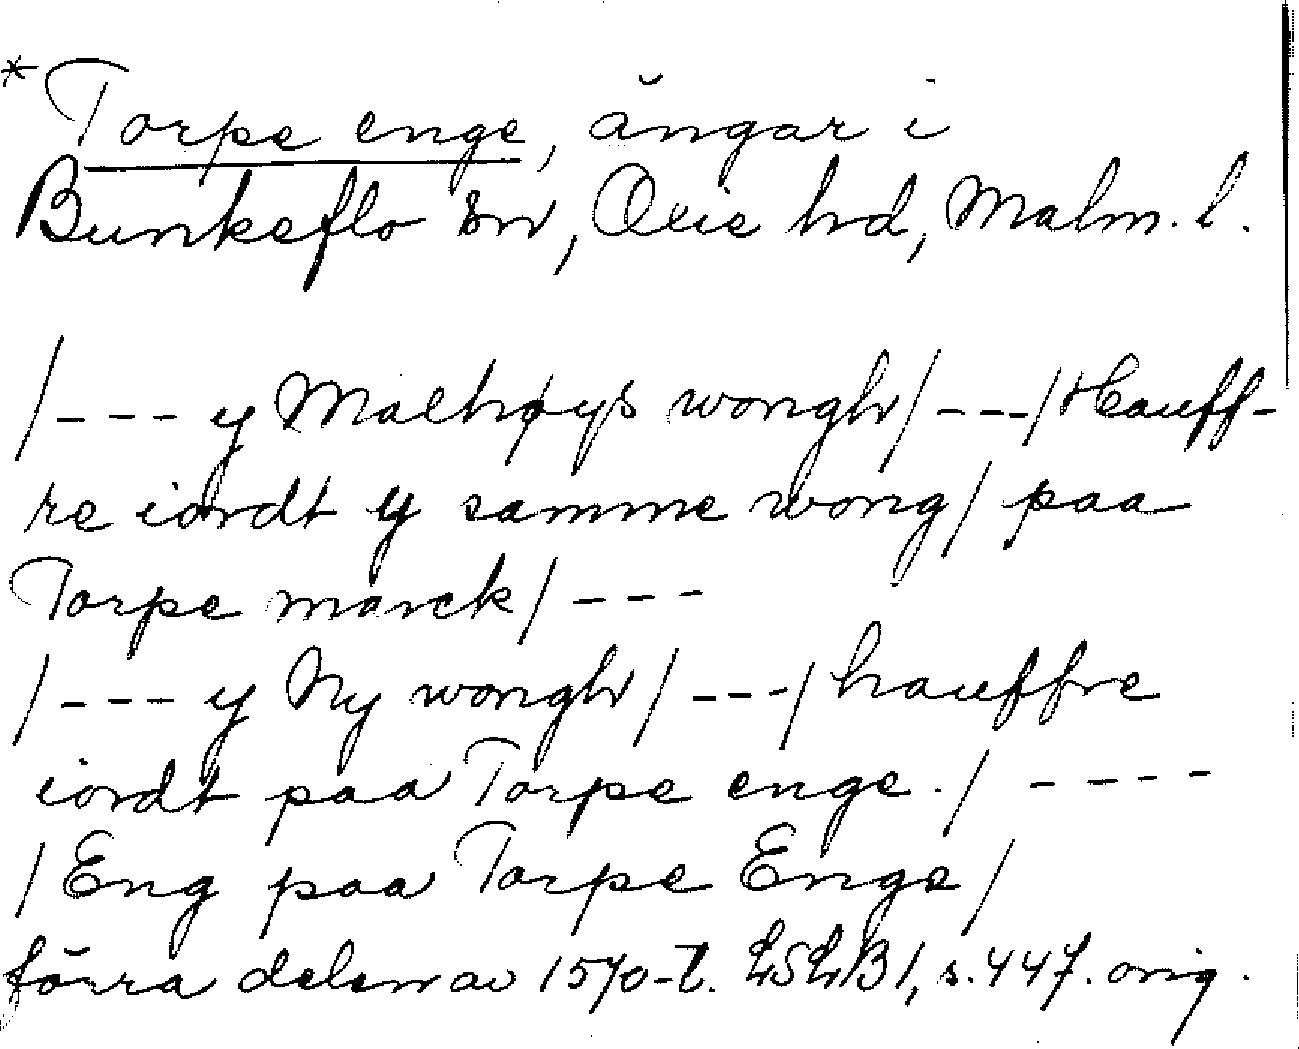 * Torpe enge, ängar i
Bunkeflo sn, Oxie hd, Malm. l.
/--- y Malhøys wongh/---/Hauff-
re iordt y samme wong/ paa
Torpe marck/---
/--- y Ny wongh/---/hauffre
iordt paa Torpe enge./----
/Eng paa Torpe Enge/
förra delen av 1570-t. LSLB 1, s. 447. orig.